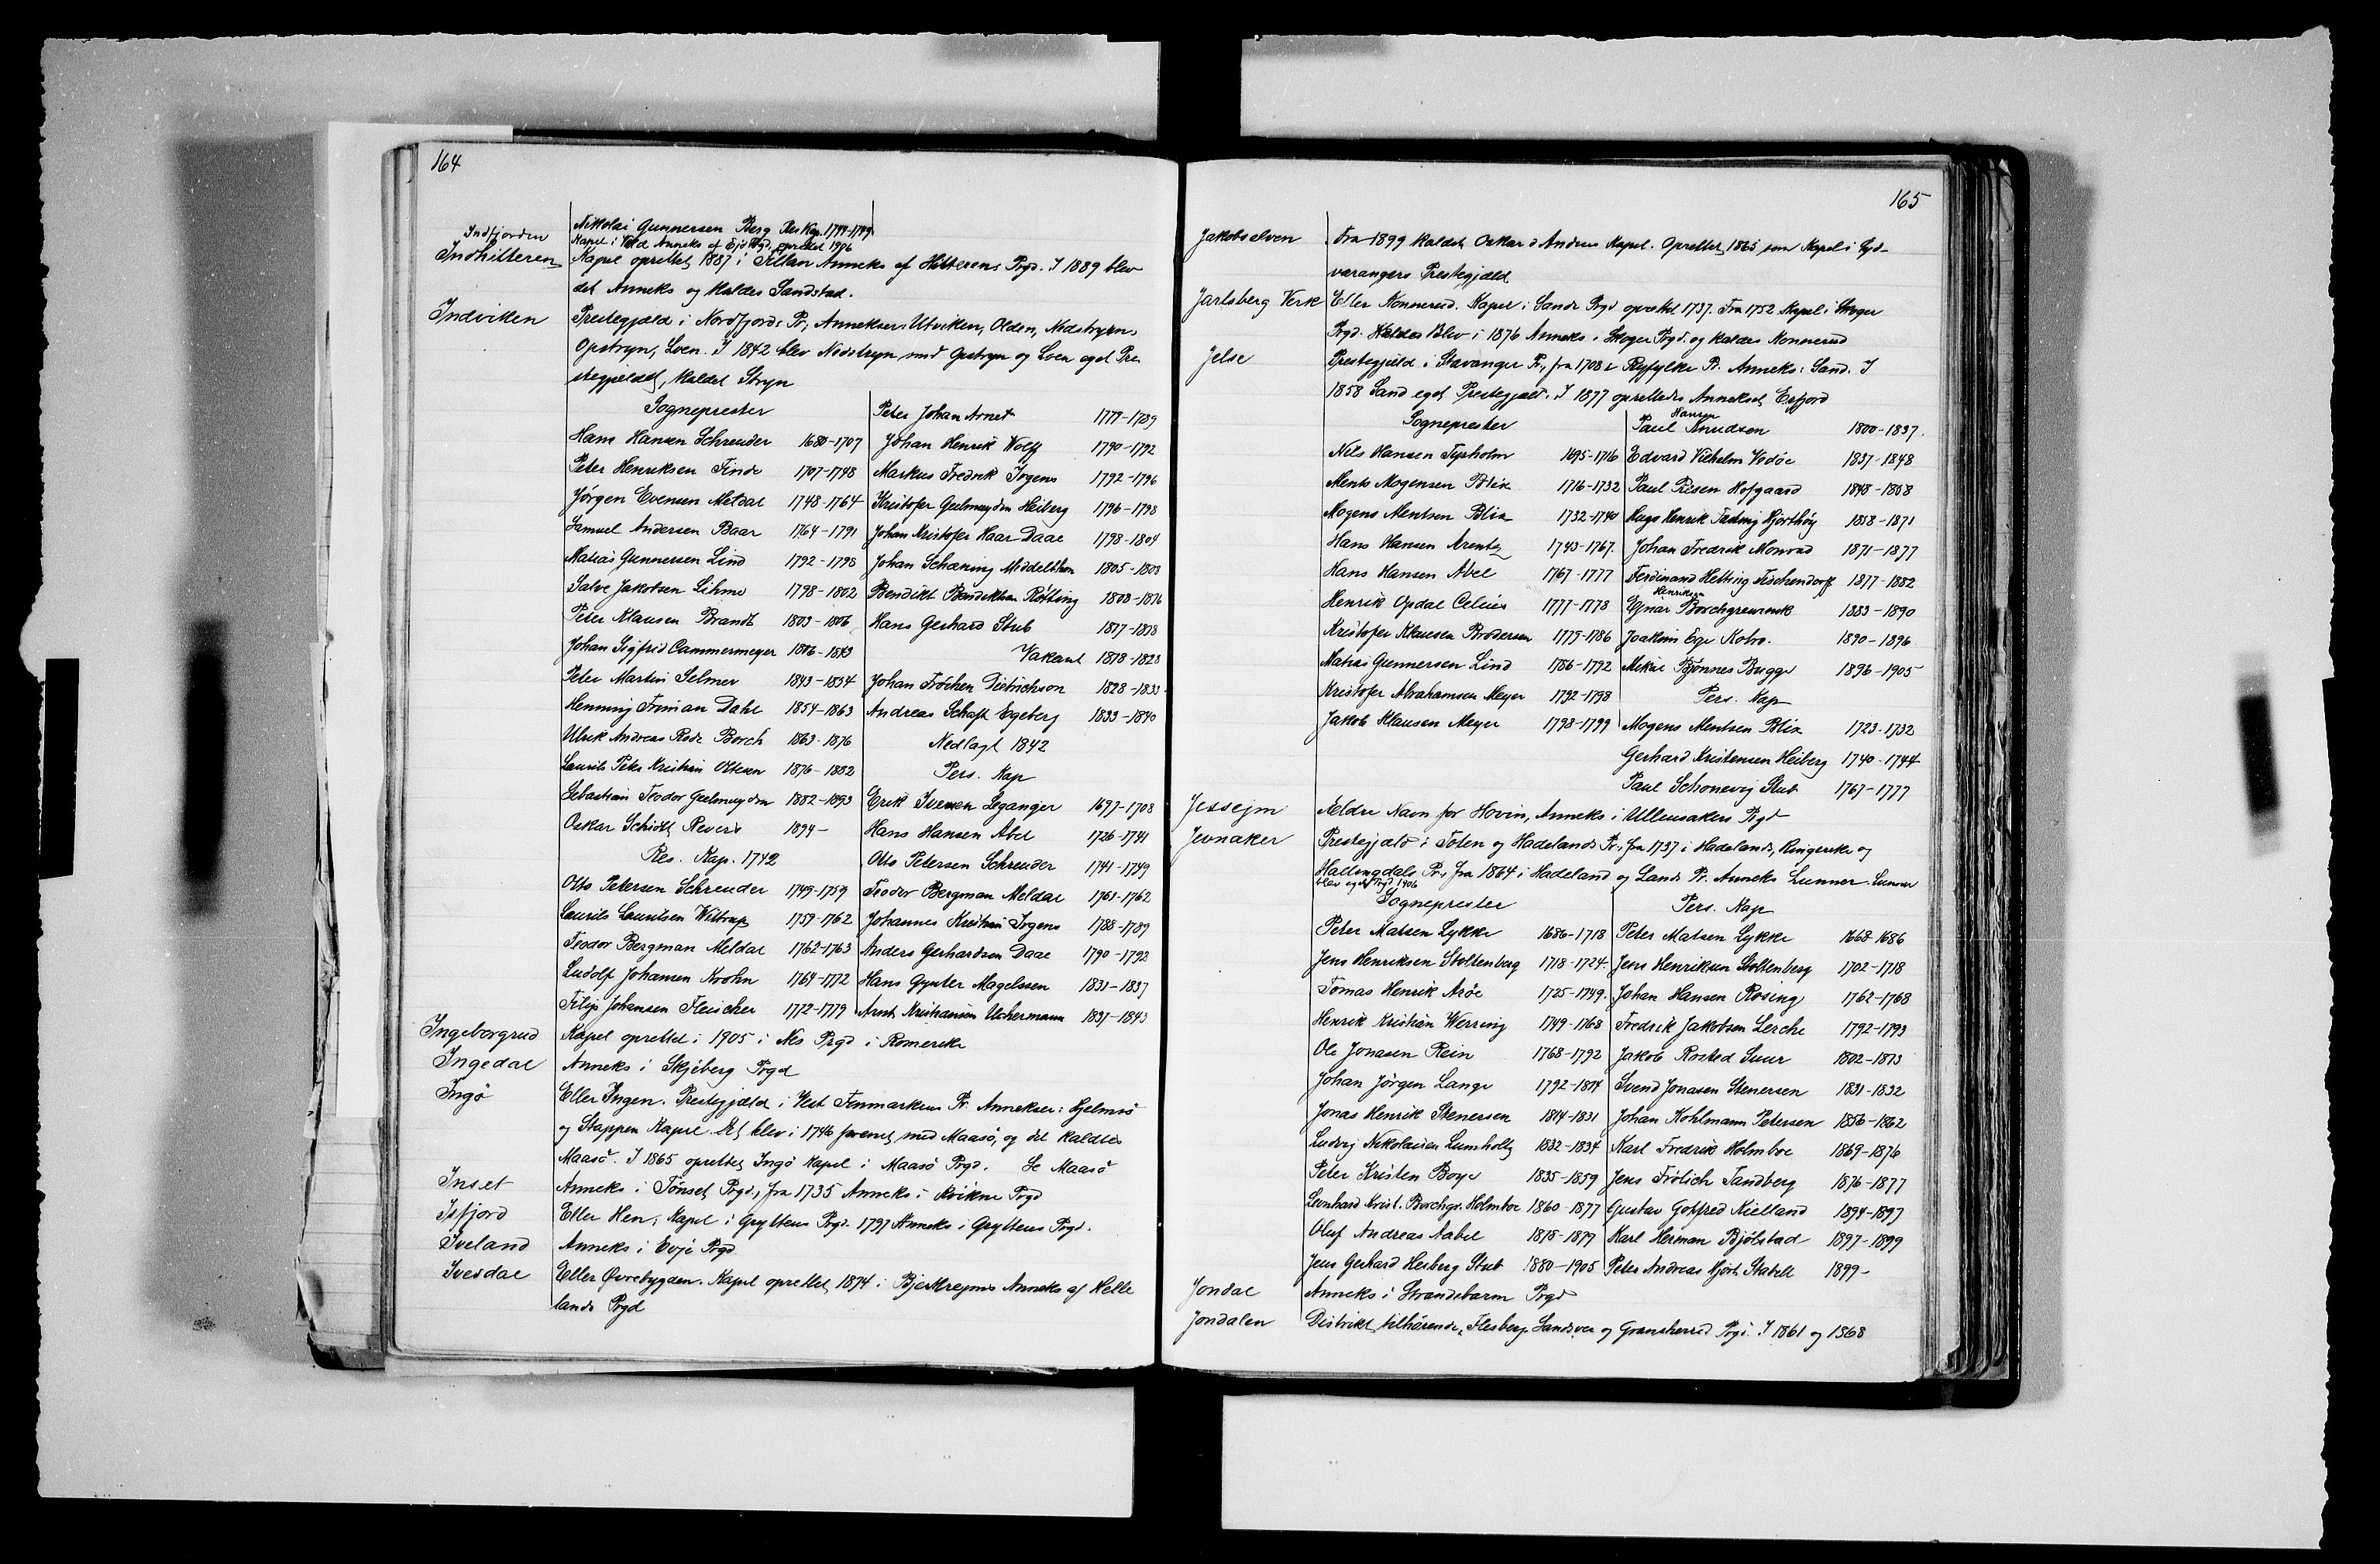 164
Nikolai Gunnersen Berg Res Kap. 1779-1779
Indfjorden Kapel i Vold Anneks af Eid Prgd. oprettet 1906
Indhitteren Kapel oprettet 1887 i Fillan Anneks af Hitterens Prgd. I 1889 blev
det Anneks og kaldes Sandstad.
Indviken Prestegjeld i Nordfjords Pr, Annekser: Utviken, Olden, Nedstryn,
Opstryn, Loen. I 1842 blev Nedstryn med Opstryn og Loen eget Pre
stegjeld, kaldet Stryn
Sogneprester
Hans Hansen Schreuder 1680-1707
Peter Henriksen Finde 1707-1748
Jørgen Evensen Meldal 1748-1764
Samuel Andersen Baar 1764-1791
Matias Gunnersen Lind 1792-1798
Salve Jakobsen Lihme 1798-1802
Peter Klausen Brandt 1803-1806
Johan Sigfrid Cammermeyer 1806-1843
Peter Martin Selmer 1843-1854
Henning Friman Dahl 1854-1863
Ulrik Andreas Rode Borch 1863-1876
Laurits Peter Kristian Ottesen 1876-1882
Sebastian Teodor Geelmuyden 1882-1893
Oskar Schiøtt Revers 1894-
Res. Kap. 1742
Otto Petersen Schreuder 1749-1759
Laurits Lauritsen Wittrup 1759-1762
Teodor Bergman Meldal 1762-1763
Ludolf Johansen Krohn 1764-1772
Filip Johansen Fleischer 1772-1779
Peter Johan Arnet 1779-1789
Johan Henrik Wolff 1790-1792
Markus Fredrik Irgens 1792-1796
Kristofer Geelmuyden Heiberg 1796-1798
Johan Kristofer Haar Daae 1798-1804
Johan Schøning Middelthon 1805-1808
Bendikt Bendiktsen Røtting 1808-1816
Hans Gerhard Stub 1817-1818
Vakant 1818-1828
Johan Frôchen Dietrichson 1828-1833
Andreas Schaft Egeberg 1833-1840
Nedlagt 1842
Pers. Kap
Erik Iversen Leganger 1697-1708
Hans Hansen Abel 1726-1741
Otto Petersen Schreuder 1741-1749
Teodor Bergman Meldal 1761-1762
Johannes Kristian Irgens 1788-1789
Anders Gerhardsen Daae 1790-1792
Hans Gynter Magelssen 1831-1837
Arnt Kristiansen Uchermann 1837-1843
Ingeborgrud Kapel oprettet i 1905 i Nes Prgd i Romerike
Ingedal Anneks i Skjeberg Prgd
Ingô Eller Ingen. Prestegjeld i Vest Finmarkens Pr. Annekser: Hjelmsô
og Stappen Kapel. Det blev i 1746 forenet med Maasô, og det kaldtes
Maasô. I 1865 oprettet Ingô Kapel i Maasô Prgd. Se Maasô
Inset Anneks i Tônset Prgd, fra 1735 Anneks i Kvikne Prgd
Isfjord Eller Hen; Kapel i Gryttens Prgd. 1797 Anneks i Gryttens Prgd.
Iveland Anneks i Evje Prgd
Ivesdal Eller Øvrebygden. Kapel oprettet 1874 i Bjerkrejms Anneks af Helle
lands Prgd
165
Jakobselven Fra 1899 kaldet Oskar d Andens Kapel. Oprettet 1865 som Kapel i Syd-
varangers Prestegjæld
Jarlsberg Verk Eller Konnerud. Kapel i Sande Prgd oprettet 1737. Fra 1752 Kapel i Skoger
Prgd. Blev i 1876 Anneks i Skoger Prgd. og kaldes Konnerud
Jelse Prestegjeld i Stavanger Pr, fra 1708 i Ryfylke Pr. Anneks: Sand. I
1858 Sand eget Prestegjeld. I 1877 oprettedes Annekset Erfjord
Sogneprester
Nils Hansen Typholm 1695-1716
Ments Mogensen Blix 1716-1732
Mogens Mentsen Blix 1732-1740
Hans Hansen Arentz 1743-1767.
Hans Hansen Abel 1767-1777
Henrik Opdal Celius 1777-1778
Kristofer Klausen Brodersen 1779-1786
Matias Gunnersen Lind 1786-1792
Kristofer Abrahamsen Meyer 1792-1798
Jakob Klausen Meyer 1798-1799
Hansen
Paul Knudsen 1800-1837.
Edvard Vilhelm Vodôe 1837-1848
Paul Riisen Hofgaard 1848-1858
Hugo Henrik Fasting Hjorthôy 1858-1871
Johan Fredrik Monrad 1871-1877
Ferdinand Helting Tischendorff 1877-1882
Henriksen
Ejnar Borchgrevink 1883-1890
Joakim Ege Kolvo. 1890-1896
Mikal Bjônnes Bugge 1896-1905
Pers. Kap
Mogens Mentsen Blix 1723-1732
Gerhard Kristensen Heiberg 1740-1744
Paul Schonevig Stub 1767-1777
Jessejm Ældre Navn for Hovin, Anneks i Ullensakers Prgd
Jevnaker Prestegjeld i Toten og Hadelands Pr, fra 1737 i Hadelands, Ringerike og
Hallingdals Pr, fra 1864 i Hadeland og Lands Pr. Anneks Lunner. Lunner
blev eget Prgd 1906
Sogneprester
Peter Matsen Lykke 1686-1718
Jens Henriksen Stoltenberg 1718-1724.
Tomas Henrik Arôe 1725-1749.
Henrik Kristian Werring 1749-1768
Ole Jonasen Rein 1768-1792
Johan Jôrgen Lange 1792-1814
Jonas Henrik Stenersen 1814-1831
Ludvig Nikolaisen Lumholtz 1832-1834
Peter Kristen Boye 1835-1859
Leonhard Krist. Borchgr. Holmboe 1860-1877
Oluf Andreas Aabel 1878-1879
Jens Gerhard Heiberg Stub 1880-1905
Pers. Kap
Peter Matsen Lykke 1668-1686
Jens Henriksen Stoltenberg 1702-1718
Johan Hansen Rosing 1762-1768
Fredrik Jakobsen Lerche 1792-1793
Jakob Rosted Suur 1802-1813
Svend Jonasen Stenersen 1831-1832
Johan Kohlmann Petersen 1856-1862
Karl Fredrik Holmboe 1869-1876
Jens Frôlich Tandberg 1876-1877
Gustav Gotfred Kielland 1894-1897
Karl Herman Bjôlstad 1897-1899
Peter Andreas Hjort Stabell 1899-
Jondal Anneks i Strandebarm Prgd
Jondalen Distrikt tilhôrende, Flesberg, Sandsver og Gransherred Prgd. I 1861 og 1868